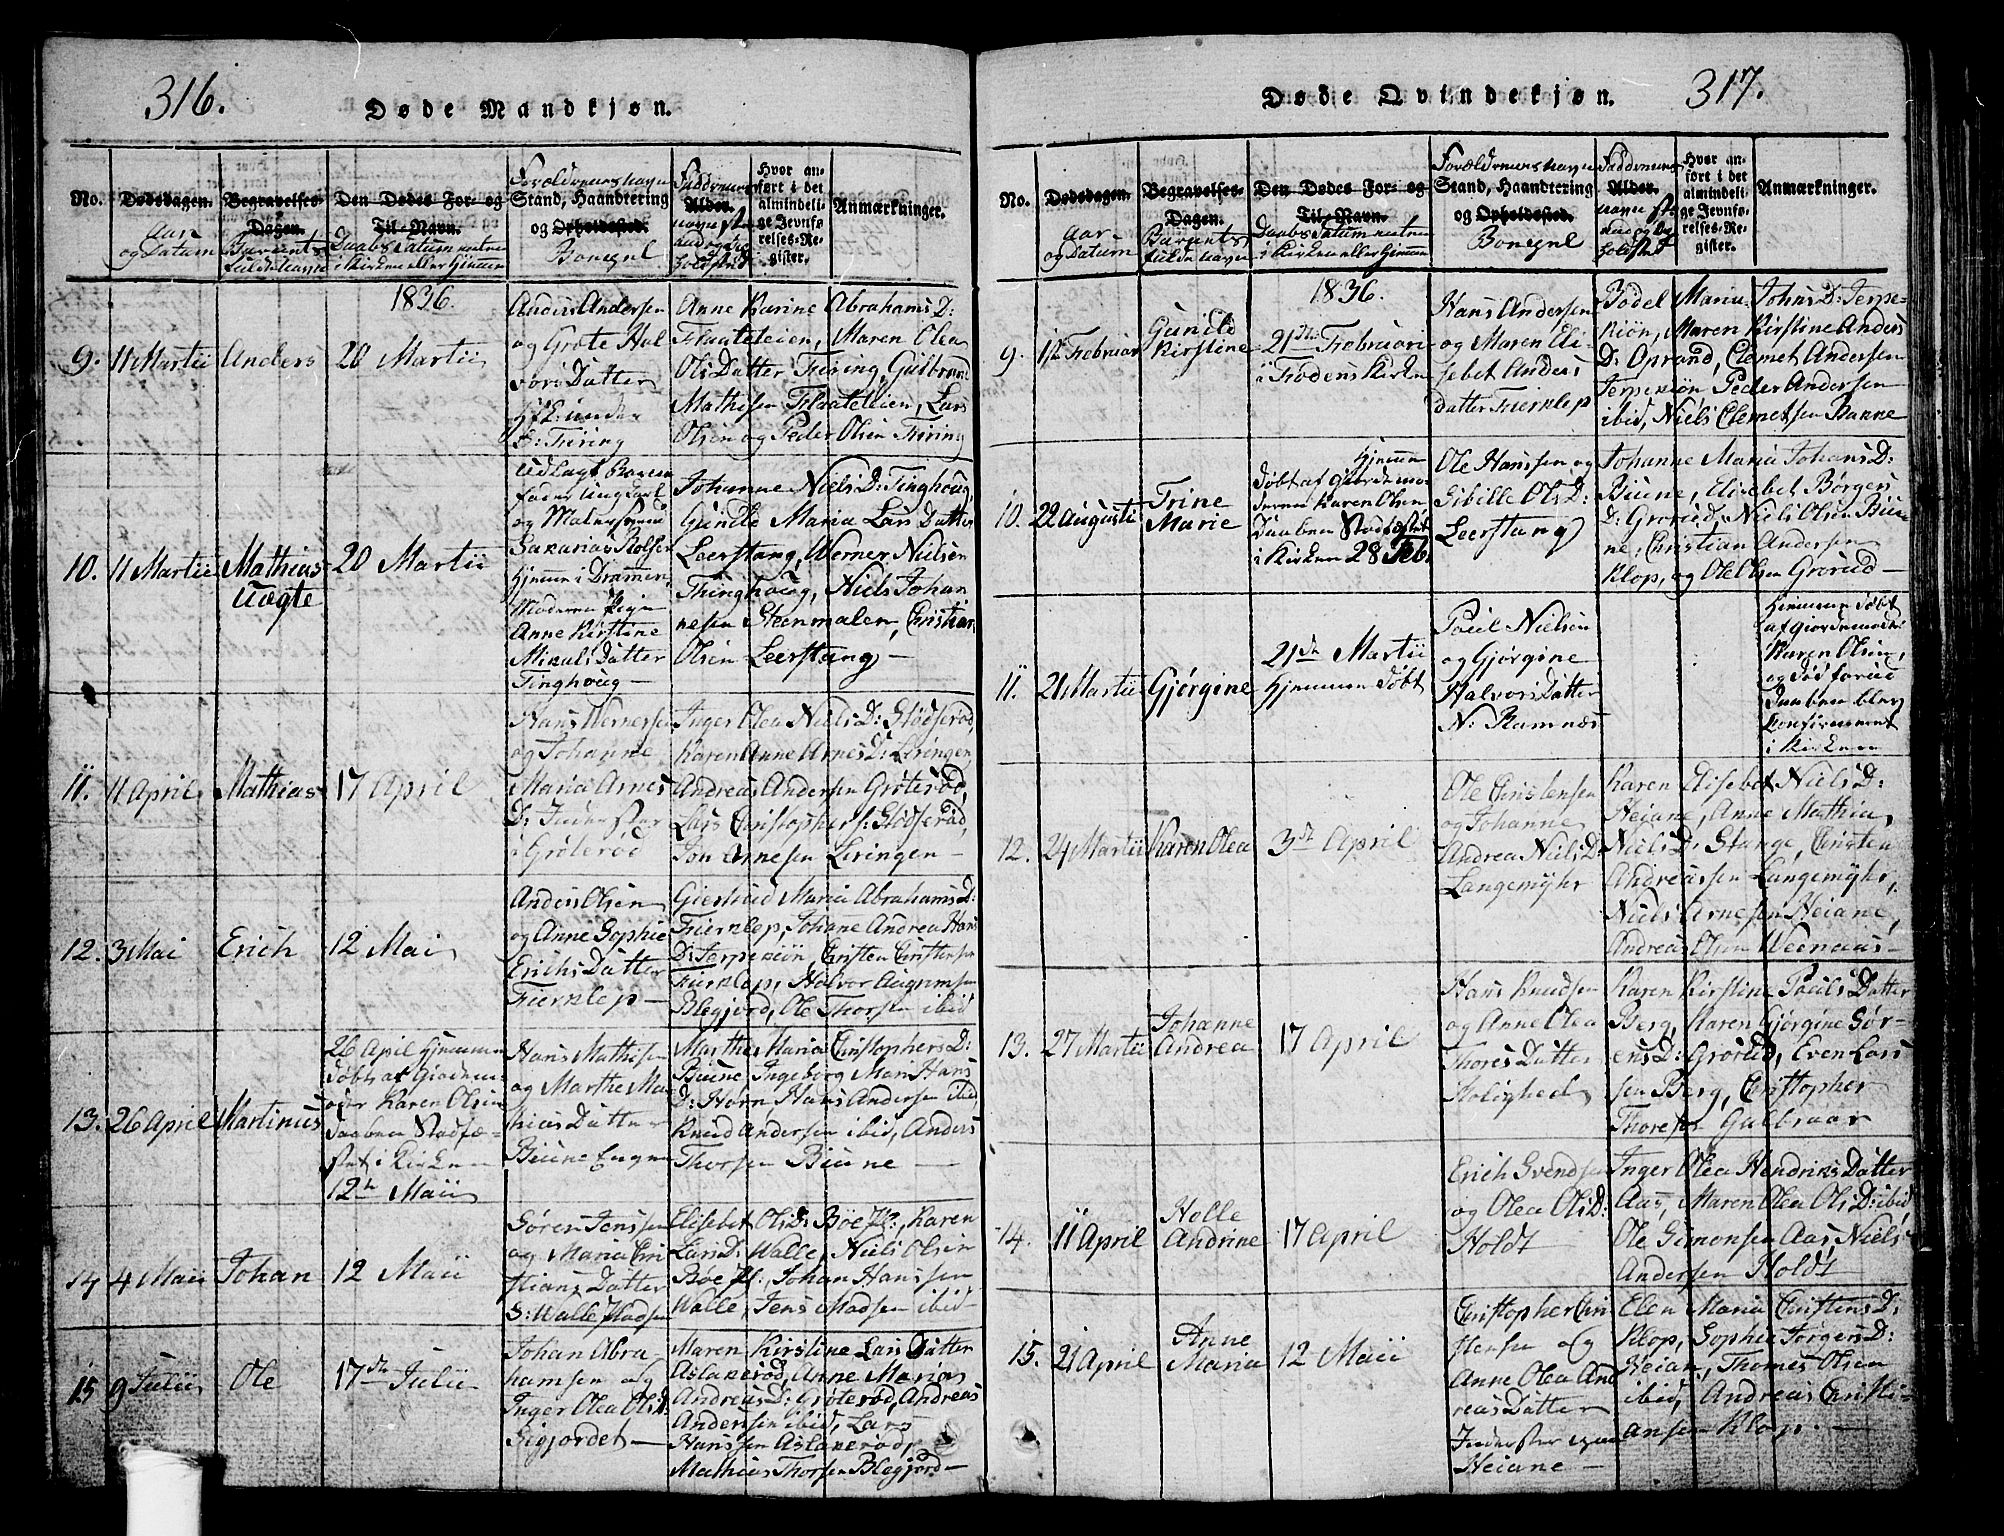 316.
Døde Mandkjøn.
No.
Dødsdagen.
Aar
og Datum
Begravelses-
Dagen.
Barnets
fulde Navn
Den Dødes For- og
Til-Navn.
Daabs Datum enten
i Kirken eller Hjemme
Forældrenes Navn
Stand, Haandtering
og Opholdssted.
Bopæl
Faddernes
Alder.
Navne St
Hvor an-
ført i det
almindeli-
ge Jevnfø-
relses-Re-
gister.
Anmærkninger.
1836.
9. 11 Martii
Anders
20 Martii
Anders Andersen
og Grete Hal
vors Datter
D: Firing
Anne Karine Abrahams D:
Flaateteien, Maren Olea
Ols Datter Firing, Gulbrand
Mathisen Flaateteien, Lars
Olsen og Peder Olsen Firing
10. 11 Martii
Mathias
Uægte
20 Martii
Udlagt Barne
fader Ungkarl
og Matros
Sakarias
hjemme i Drammen
Moderen Pigen
Anne Kirstine
Mikals Datter
Tinghoug
Johanne Niels D: Tinghoug,
Gunild Maria Lars Datter
Leerstang, Werner Nielsen
Thinghoug, Niels Johan
nesen Steenmalen, Christian
Olsen Leerstang
11. 11 April
Mathias
17 April
Hans Wernersen
og Johanne
Maria Arnes
D: Inderstar
Grøterød
Inger Olea Niels D: Slødserød,
Karen Anne Arnes D: Liringen,
Andreas Andersen Grøterød,
Lars Christophers: Slødserød,
Jon Arnesen Liringen
12. 3 Mai
Erich
12 Mai
Anders Olsen
og Anne Sophie
Erichs Datter
Fierklep
Giertrud Maria Abrahams D:
Fierklep, Johane Andrea Hans
D: Terpekiön, Christen Christensen
Fierklep, Halvor Augrimsen
Blegjord, Ole Thorsen ibid
13. 26 April
Martinus
26 April Hjemme
døbt af Giordem
oder Karen Olsen
Daaben Stadfæ-
stet i Kirken
12te Maii
Hans Mathisen
og Marthe Ma
thias Datter
Biune Eugen
Marthe Maria Christophers D:
Biune Ingeborg Mari Hans
D: Horn, Hans Andersen ibid
Knud Andersen ibid, Anders
Thorsen Biune
14 4 Maii
Johan
12 Maii
Søren Jenssen
og Maria Chri
stians Datter
S: Walle Pladsen
Elisebet Ols D: Bøe Pl:, Karen
Lars D: Walle, Niels Olsen
Bøe Pl: Johan Hanssen
Walle, Jens Madsen ibid
15 9 Julii
Ole
17de Julii
Johan Abra
hamsen og
Inger Olea Ols D:
Gigjordet
Maren Kirstine Lars Datter
Aslakerød, Anne Maria
Andreas D: Grøterød, Andreas
Andersen ibid, Lars
Hanssen Aslakerød,
Mathias Thorsen Blegjord
317.
Døde Qvindekjøn.
No.
Dødsdagen.
Aar-
og Datum
Begravelses-
Dagen.
Barnets
fulde Navn
Den Dødes For- og
Til-Navn.
Daabs Datum enten
i Kirken eller Hjemme
Forældrenes Navn
Stand, Haandtering
og Opholdssted.
Bopæl
Faddernes
Alder.
Navne St
Hvor an-
ført i det
almindeli-
ge Jevnfø-
relses-Re-
gister.
Anmærkninger.
1836.
9. 1ste Februar
Gunild
Kirstine
21de Februari
i Fødens Kirke
Hans Andersen
og Maren Eli-
sebet Anders
datter Fierklep
Bodel Maria Johns D: Terpe-
kiön, Maren Kirstine Anders
D: Oprand, Clemet Andersen
Terpekiön Peder Andersen
ibid, Niels Clemetsen Banne
10. 22 Augusti
Trine
Marie
Hjemme
døbt af Giordemo-
deren Karen Olsen
Daaben Stadfæstet
i Kirken 28 Feb.
Ole Hanssen og
Sibille Ols D:
Leerstang
Johanne Maria Johans D:
Biune, Elisebet Børges
D: Grorud, Niels Olsen Biu
ne, Christian Andersen
Klop, og Ole Olsen Grorud
11. 21 Martii
Gjørgine
21de Martii
Hjemme døbt
Poul Nielsen
og Gjørgine
Halvors Datter
N: Ramnæs
Hjemme døbt
af Giordemoder
Karen Olsen,
og død forud
Daaben blev
Konfirmeret
i Kirken
12. 24 Martii
Karen Olea
3de April
Ole Christensen
og Johanne
Andrea Niels D:
Langemyhr
Karen Elisebet Niels D:
Heiane, Anne Mathia
Niels D: Stange, Christen
Andreassen Langemyhr,
Niels Arnesen Heiane,
Andreas Olsen Weenaas
13. 27 Martii
Johanne
Andrea
17 April
Hans Knudsen
og Anne Olea
Thores Datter
Rolighed
Karen Kirstine Pouls Datter
Berg, Karen Gjørgine Sør-
ens D: Grorud, Even Lars
sen Berg, Christopher
Thoresen Gulbraar
14. 11 April
Holle
Andrine
17 April
Erich Svendsen
og Olea Ols D:
Holdt
Inger Olea Hendriks Datter
Aas, Maren Olea Ols D: ibid
Ole Simonsen Aas Niels
Andersen Holdt
15. 21 April
Anne
Maria
12 Maii
Christopher Chri
stensen og
Anne Olea And
reas Datter
Inderster
Heiane
Elen Maria Christens D:
Klop, Sophie Jørgens D:
Heian, Thomes Olsen
ibid, Andreas Christi-
ansen Klop.